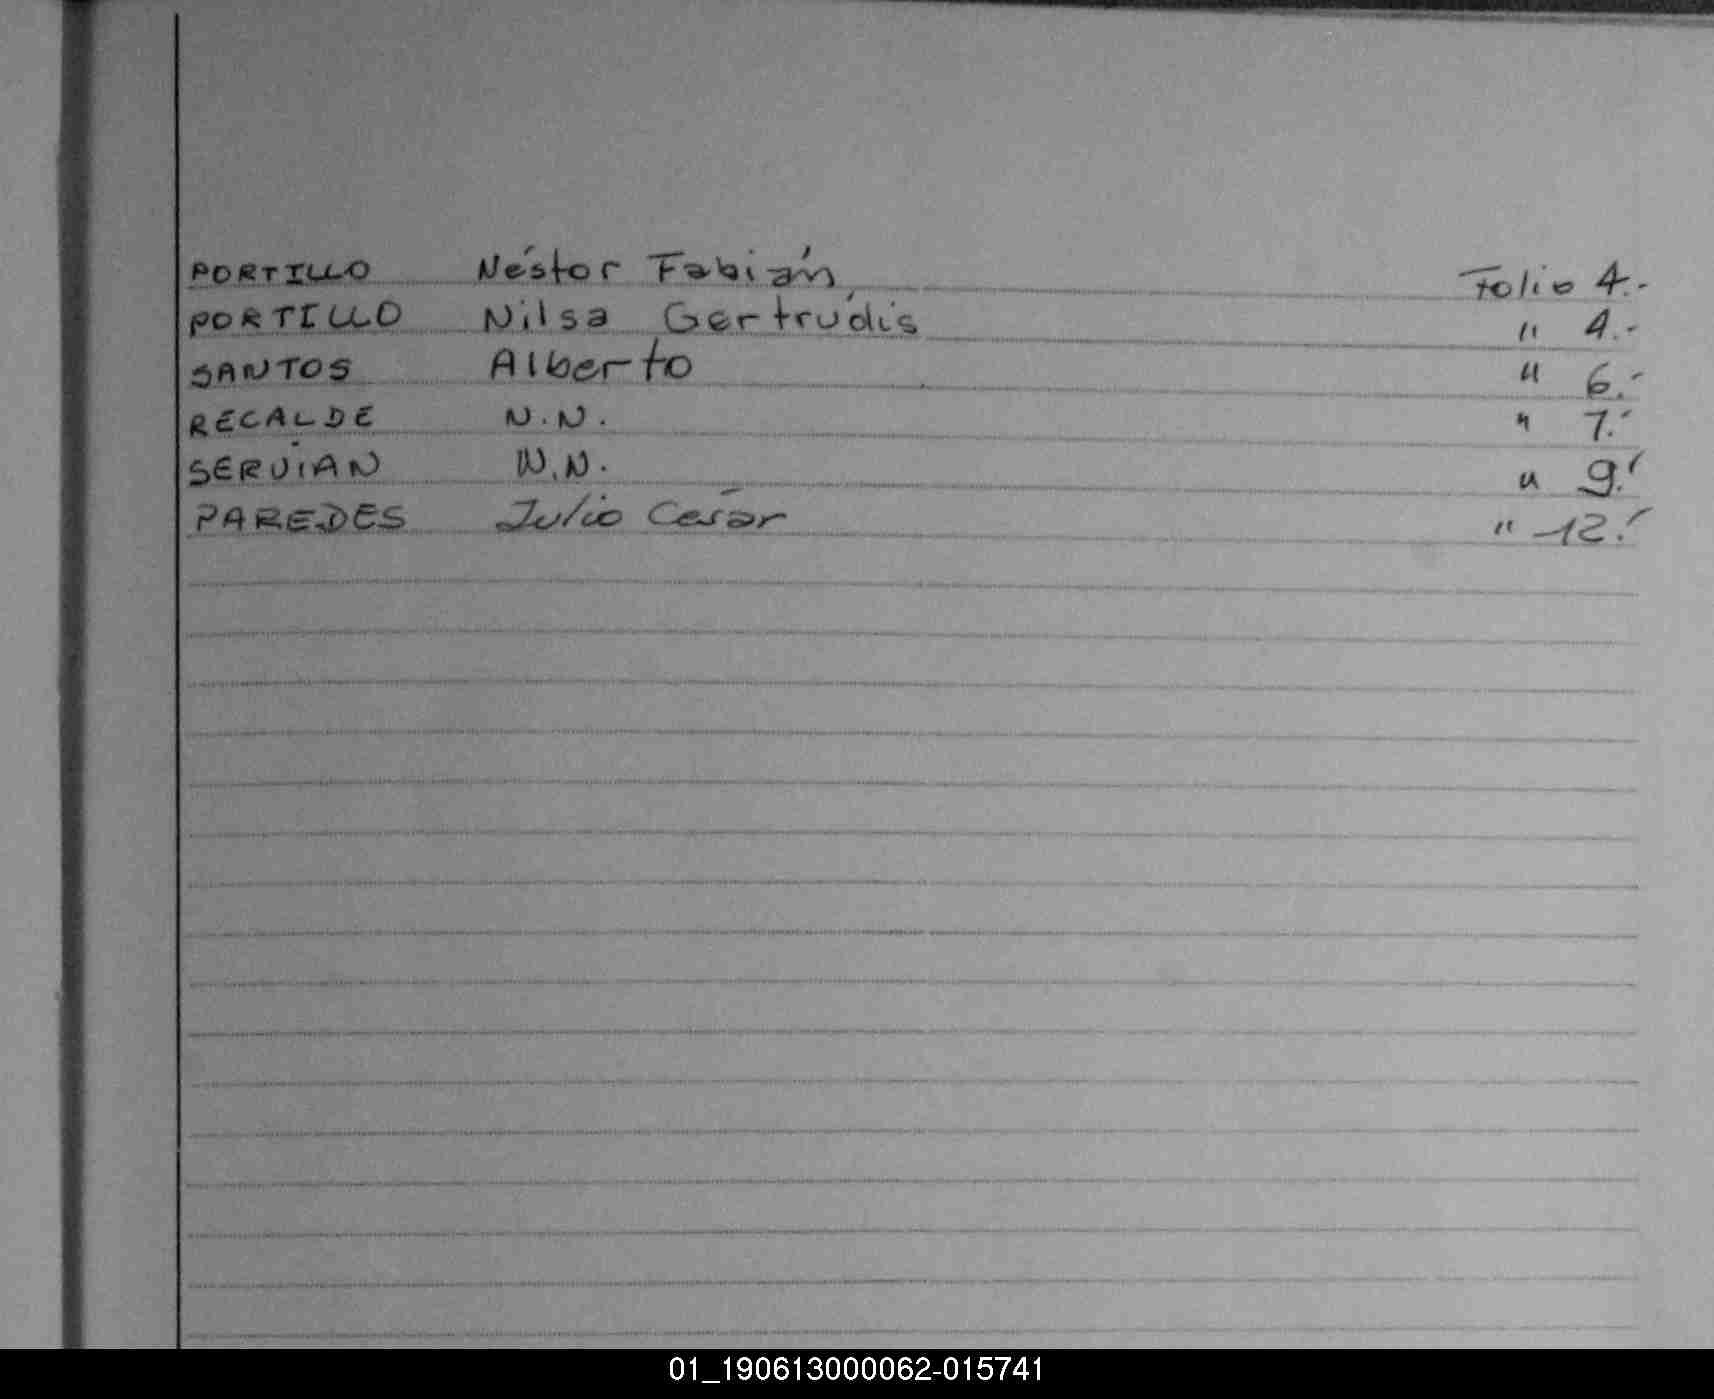 PORTILLO Néstor Fabián Folio 4.-
PORTILLO Nilsa Gertrúdis " 4.-
SANTOS Alberto " 6.-
RECALDE N.N. " 7.-
SERVIAN N.N. " 9.-
PAREDES Julio Cesar " 12.-
01_190613000062-015741